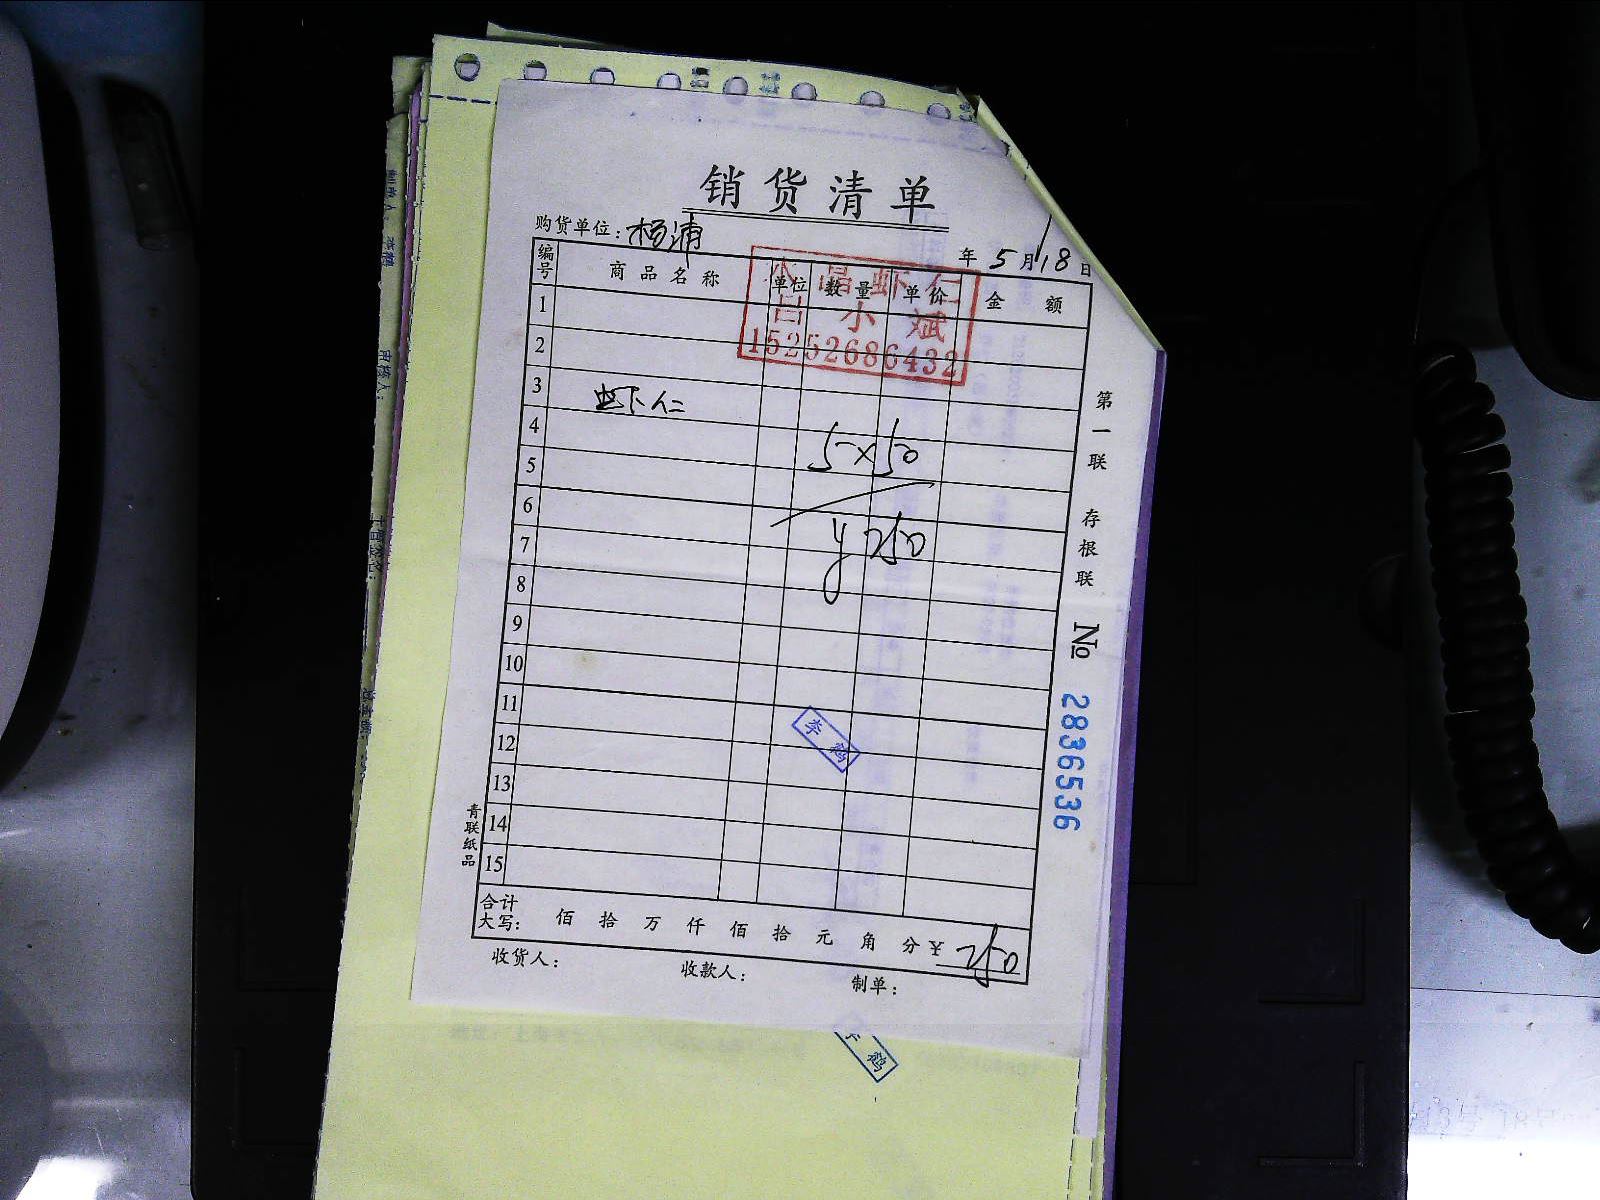 销货清单
购货单位：杨浦
年 5 月 18 日
编号 商品名称 单位 数量 单价 金额
晶虾仁
吕小斌
15252686432
1
2
3 虾仁
4
5 5×50
6
7 ¥250
8
9
10
11
12
13
14
15
李鹤
合计大写： 佰 拾 万 仟 佰 拾 元 角 分 ¥ 250
收货人： 收款人： 制单：
第一联 存根联 № 2836536
青联纸品
鹤